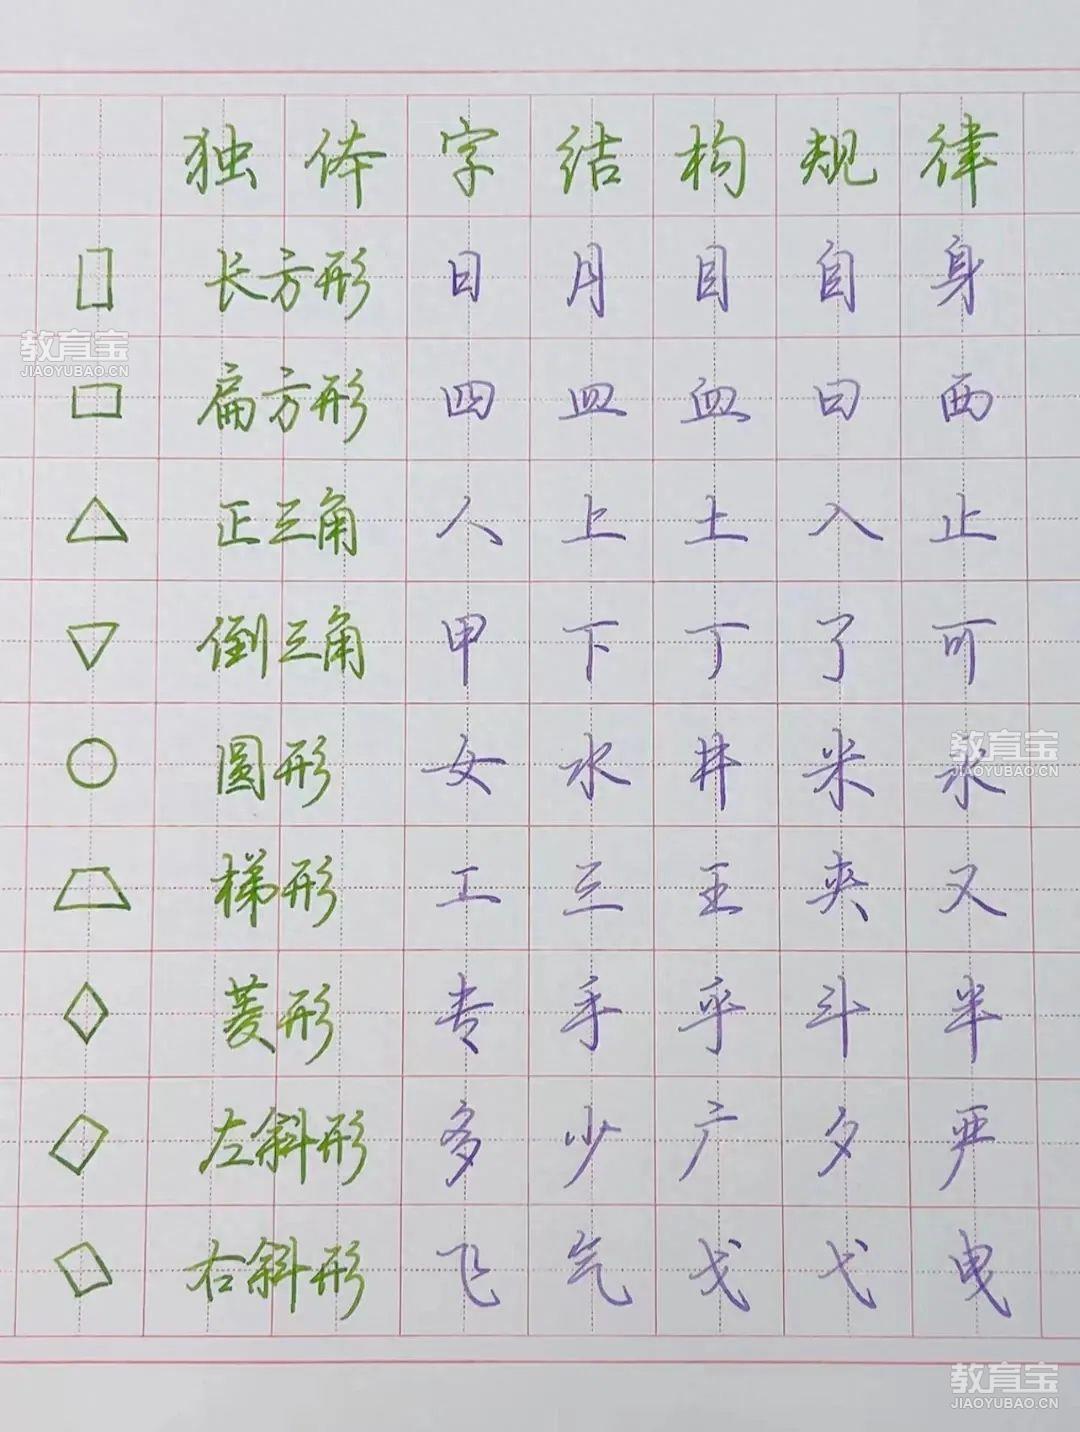 独体字结构规律
长方形 日 月 目 自 身
教育宝
JIAOYUBAO.CN
扁方形 四 皿 血 曰 西
正三角 人 上 土 入 止
倒三角 甲 下 丁 了 可
圆形 女 水 井 米 永
教育宝
JIAOYUBAO.CN
梯形 工 三 王 夹 又
菱形 专 手 乎 斗 半
左斜形 多 少 广 夕 严
右斜形 飞 气 戈 弋 曳
教育宝
JIAOYUBAO.CN